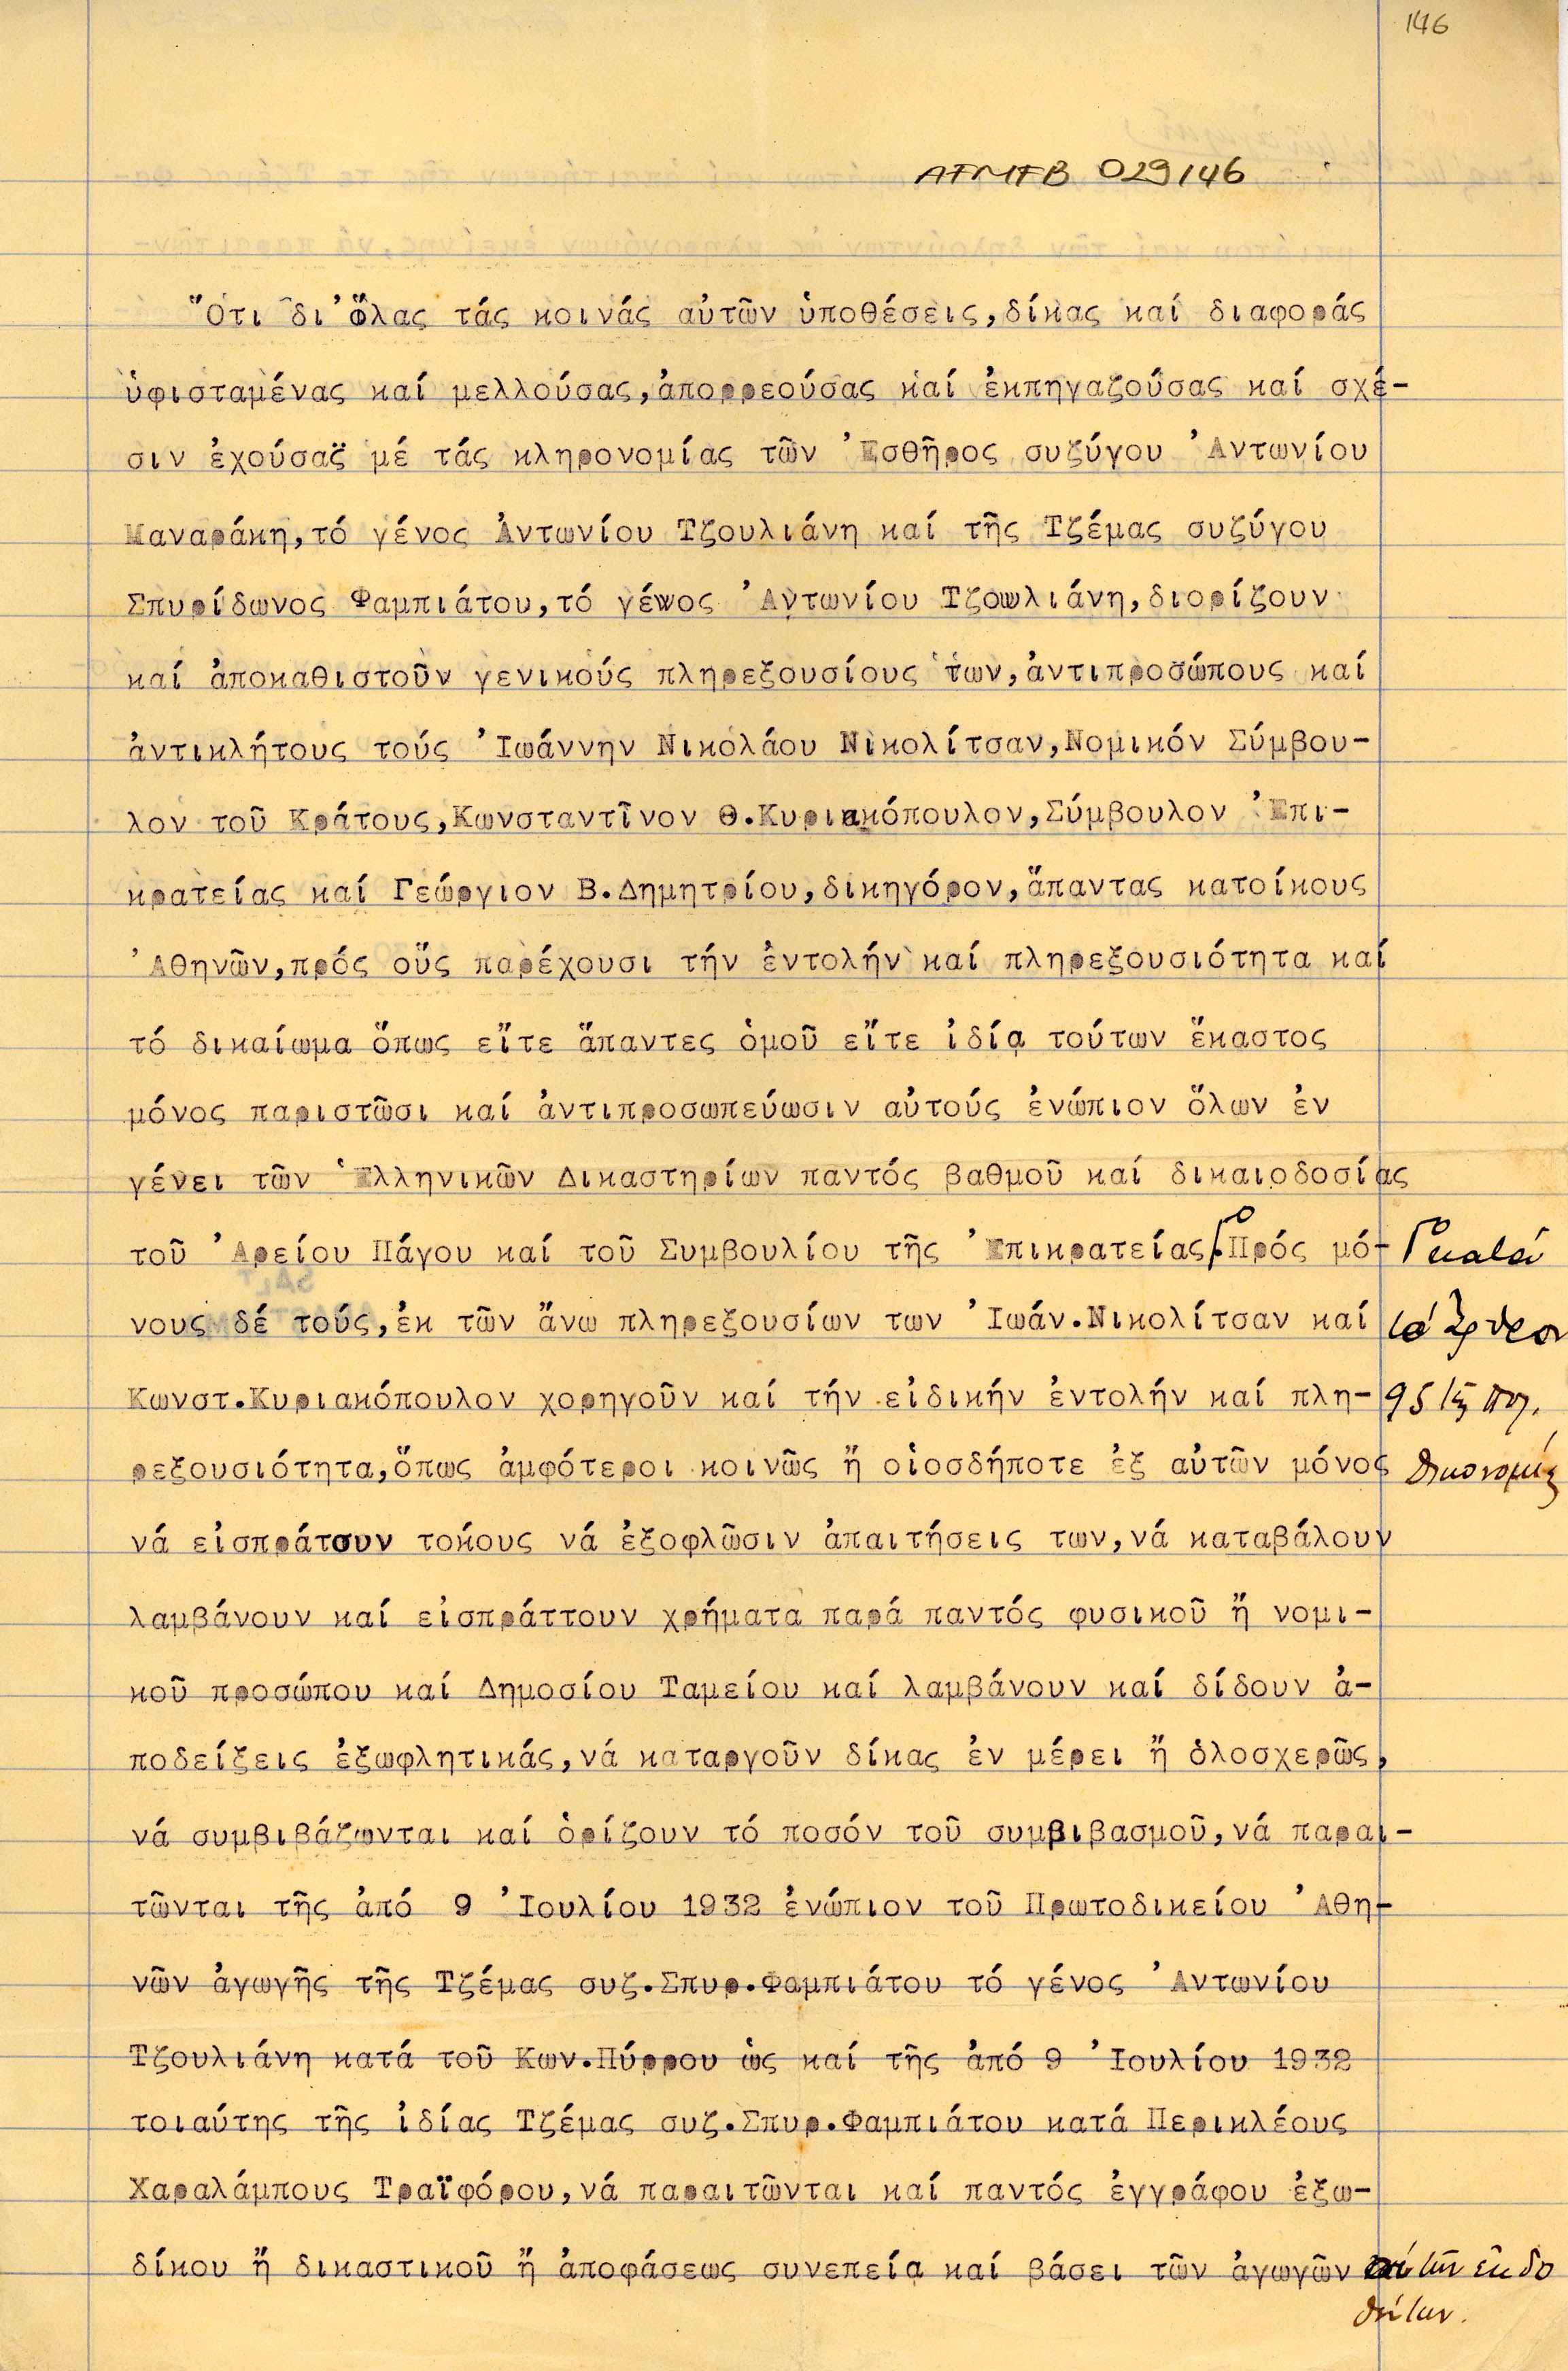 146
AFMFB 029/46
Ὅτι δι' ὅλας τάς κοινάς αὐτῶν ὑποθέσεις,δίκας καί διαφοράς
ὑφισταμένας καί μελλούσας,ἀπορρεούσας καί ἐκπηγαζούσας καί σχέ-
σιν ἐχούσας μέ τάς κληρονομίας τῶν Ἐσθῆρος συζύγου Ἀντωνίου
Μαναράκη,τό γένος Ἀντωνίου Τζουλιάνη καί τῆς Τζέμας συζύγου
Σπυρίδωνος Φαμπιάτου,τό γένος Ἀντωνίου Τζουλιάνη,διορίζουν
καί ἀποκαθιστοῦν γενικούς πληρεξουσίους των,ἀντιπροσώπους καί
ἀντικλήτους τούς Ἰωάννην Νικολάου Νικολίτσαν,Νομικόν Σύμβου-
λον τοῦ Κράτους,Κωνσταντῖνον Θ.Κυριακόπουλον,Σύμβουλον Ἐπι-
κρατείας καί Γεώργιον Β.Δημητρίου,δικηγόρον,ἅπαντας κατοίκους
Ἀθηνῶν,πρός οὕς παρέχουσι τήν ἐντολήν καί πληρεξουσιότητα καί
τό δικαίωμα ὅπως εἴτε ἅπαντες ὁμοῦ εἴτε ἰδίᾳ τούτων ἕκαστος
μόνος παριστῶσι καί ἀντιπροσωπεύωσιν αὐτούς ἐνώπιον ὅλων ἐν
γένει τῶν Ἑλληνικῶν Δικαστηρίων παντός βαθμοῦ καί δικαιοδοσίας
τοῦ Ἀρείου Πάγου καί τοῦ Συμβουλίου τῆς Ἐπικρατείας.Πρός μό- κατά
νους δέ τούς,ἐκ τῶν ἄνω πληρεξουσίων των Ἰωάν.Νικολίτσαν καί τό ἄρθρον
Κωνστ.Κυριακόπουλον χορηγοῦν καί τήν εἰδικήν ἐντολήν καί πλη- 95 τῆς Πολ.
ρεξουσιότητα,ὅπως ἀμφότεροι κοινῶς ἤ οἱοσδήποτε ἐξ αὐτῶν μόνος Δικονομίας
νά εἰσπράτουν τόκους νά ἐξοφλῶσιν ἀπαιτήσεις των,νά καταβάλουν
λαμβάνουν καί εἰσπράττουν χρήματα παρά παντός φυσικοῦ ἤ νομι-
κοῦ προσώπου καί Δημοσίου Ταμείου καί λαμβάνουν καί δίδουν ἀ-
ποδείξεις ἐξωφλητικάς,νά καταργοῦν δίκας ἐν μέρει ἤ ὁλοσχερῶς,
νά συμβιβάζωνται καί ὁρίζουν τό ποσόν τοῦ συμβιβασμοῦ,νά παραι-
τῶνται τῆς ἀπό 9 Ἰουλίου 1932 ἐνώπιον τοῦ Πρωτοδικείου Ἀθη-
νῶν ἀγωγῆς τῆς Τζέμας συζ.Σπυρ.Φαμπιάτου τό γένος Ἀντωνίου
Τζουλιάνη κατά τοῦ Κων.Πύρρου ὡς καί τῆς ἀπό 9 Ἰουλίου 1932
τοιαύτης τῆς ἰδίας Τζέμας συζ.Σπυρ.Φαμπιάτου κατά Περικλέους
Χαραλάμπους Τραϊφόρου,νά παραιτῶνται καί παντός ἐγγράφου ἐξω-
δίκου ἤ δικαστικοῦ ἤ ἀποφάσεως συνεπείᾳ καί βάσει τῶν ἀγωγῶν τούτων ἐκδο
θέντων.